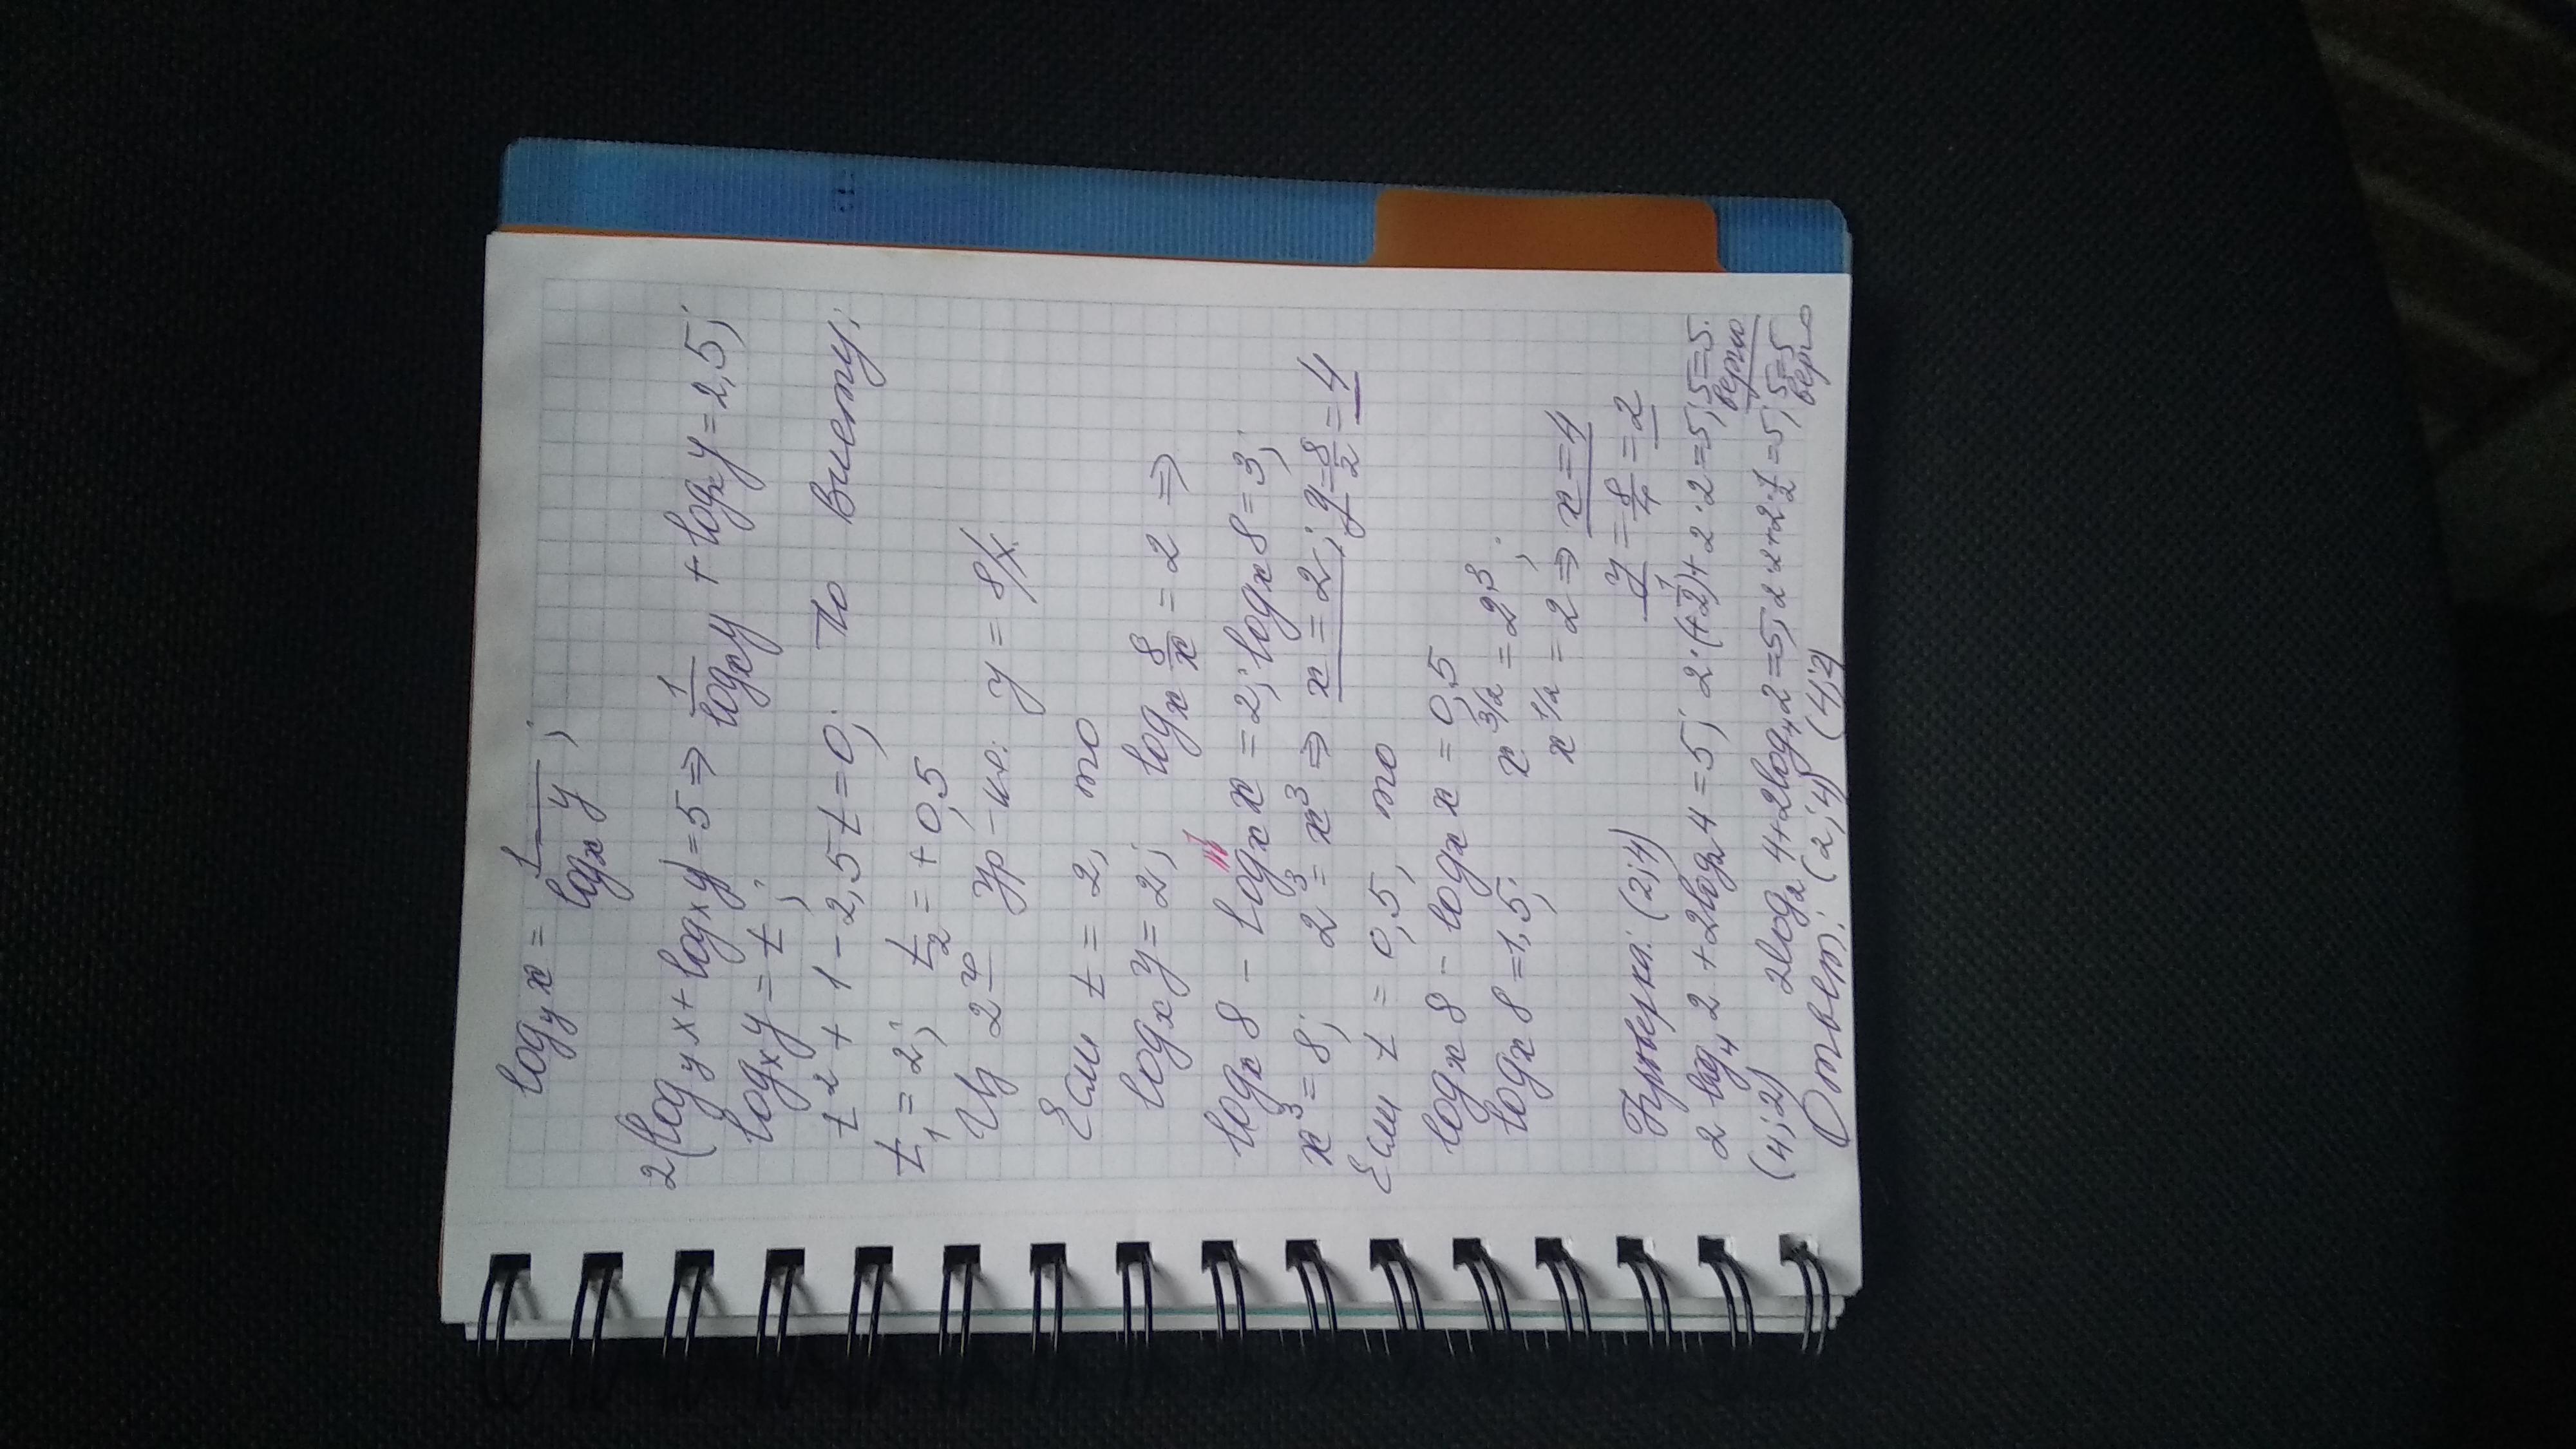 log_y x = 1/log_x y ;
2(log_y x + log_x y) = 5 ⇒ 1/log_x y + log_x y = 2,5;
log_x y = t ;
t² + 1 - 2,5t = 0; По Виету:
t₁ = 2; t₂ = +0,5
Из 2 ур-ие: y = 8/x.
Если t = 2, то
log_x y = 2; log_x 8/x = 2 ⇒
log_x 8 - log_x x = 2; log_x 8 = 3;
x³ = 8; 2³ = x³ ⇒ x = 2; y = 8/2 = 4
Если t = 0,5, то
log_x 8 - log_x x = 0,5
log_x 8 = 1,5; x^3/2 = 2³;
x^1/2 = 2 ⇒ x = 4
y = 8/4 = 2
Проверка: (2;4)
2 log₄ 2 + 2log₂ 4 = 5; 2·(+1/2) + 2·2 = 5; 5=5. верно
(4;2) 2log₂ 4 + 2log₄ 2 = 5; 2·2+2·1/2 = 5; 5=5 верно
Ответ: (2;4) (4;2)